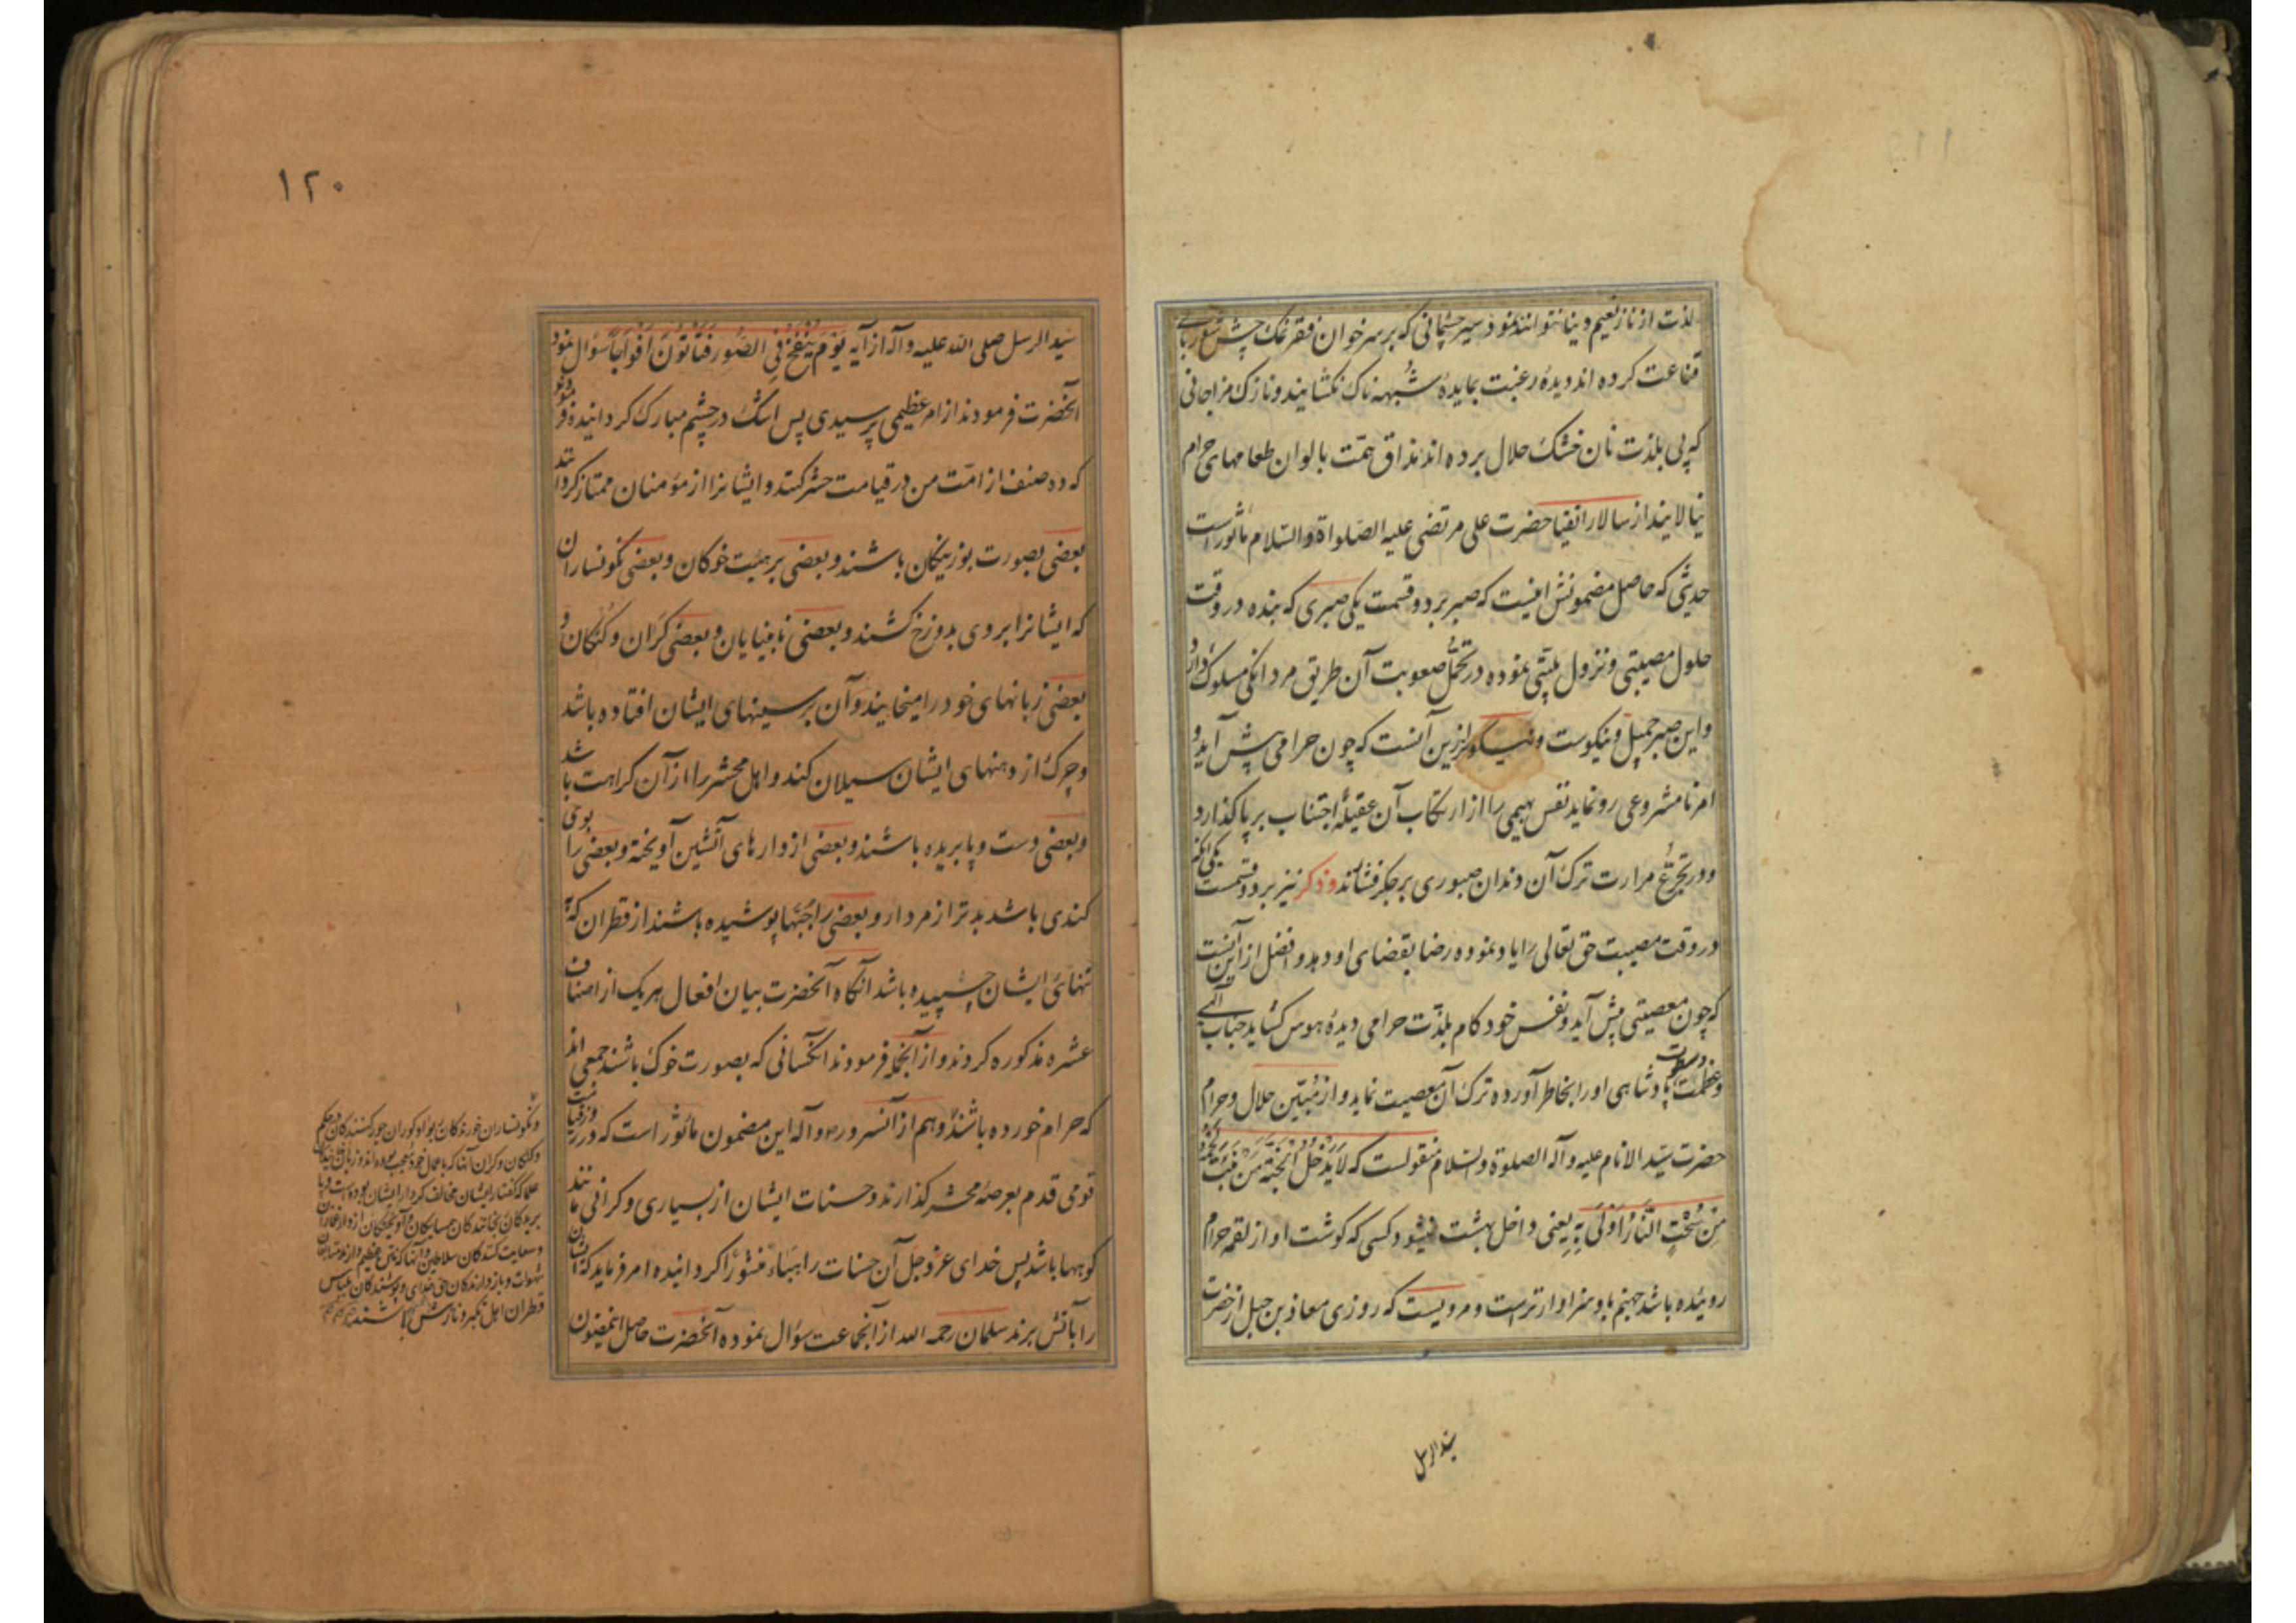 لذت از ناز نعیم دنیا نتوانند نمود سیر چشمانی که بر سر خوان فقر نمک چش
قناعت کرده اند دیدهٔ رغبت بمایدهٔ شبهه ناک نکشایند و نازک مزاجانی
که پی بلذت نان خشک حلال برده اند مذاق همّت بالوان طعامهای حرام
نیالایند از سالار اتقیا حضرت علی مرتضی علیه الصّلواة والسّلام ماثور است
حدیثی که حاصل مضمونش اینست که صبر بر دو قسمت یکی صبری که بنده در وقت
حلول مصیبتی و نزول بلیّتی نموده در تحمّل صعوبت آن طریق مردانکی مسلوک دارد
و این صبر جمیل و نیکوست و نیکوتر ازین آنست که چون حرامی پیش آید و
امر نامشروعی رو نماید نفس بهیمی را از ارتکاب آن عقیلهٔ اجتناب بر پا کذارد
و در تجرّع مرارت ترک آن دندان صبوری بر جکر فشاند و ذکر نیز بر دو قسمست یکی آنکه
در وقت مصیبت حق تعالی را یاد نموده رضا بقضای او دهد و افضل از این آنست
که چون معصیتی پیش آید و نفس خود کام بلذّت حرامی دیدهٔ هوس کشاید جناب الهی
و عظمت و سطوت پادشاهی او را بخاطر آورده ترک آن معصیت نماید و از مُبیّن حلال و حرام
حضرت سیّد الانام علیه و آله الصلوة والسّلام منقولست که لَا یَدْخُلُ الْجَنَّةَ مَنْ نَبَتَ لَحْمُهُ
مِنْ سُحْتٍ النَّارُ اَوْلَی بِهِ یعنی داخل بهشت نمیشود کسی که کوشت او از لقمه حرام
روئیده باشد جهنم باو سزاوارتر است و مرویست که روزی معاذ بن جبل از حضرت
سید الرسل
۱۲۰
سیّد الرسل صلی الله علیه و آله از آیه یَوْمَ یُنْفَخُ فِی الصُّورِ فَتَأْتُونَ اَفْوَاجًا سؤال نمود
آنحضرت فرمودند از امر عظیمی پرسیدی پس اشک در چشم مبارک کردانیده فرمودند
که ده صنف از امّت من در قیامت حشر کنند و ایشانرا از مؤمنان ممتاز کردانند
بعضی بصورت بوزینکان باشند و بعضی بر هیئت خوکان و بعضی نکونساران
که ایشانرا بر وی بدوزخ کشند و بعضی نابینایان و بعضی کران و کنکان و
بعضی زبانهای خود را میخایند و آن بر سینهای ایشان افتاده باشد
و چرک از دهنهای ایشان سیلان کند و اهل محشر را از آن کراهت باشد
و بعضی دست و پا بریده باشند و بعضی از دارهای آتشین آویخته و بعضی را بوی
کندی باشد بدتر از مردار و بعضی را جُبّها پوشیده باشند از قطران که به
تنهای ایشان چسپیده باشد آنکاه آنحضرت بیان افعال هر یک از اصناف
عشره مذکوره کردند و از آنجمله فرمودند آنکسانی که بصورت خوک باشند جمعی اند
که حرام خورده باشند و هم از آنسرور ص و آله این مضمون ماثور است که در روز قیامت
قومی قدم بعرصهٔ محشر کذارند و حسنات ایشان از بسیاری و کرانی مانند
کوهها باشد پس خدای عز و جل آن حسنات را هَبَاءً مَنْثُورًا کردانیده امر فرماید که ایشان
را بآتش برند سلمان رحمه الله از آنجماعت سؤال نموده آنحضرت حاصل اینمضمون
و نکونساران خورندکان ربوا و کوران جور کنندکان در حکم
و کنکان و کران آنها که باعمال خود معجب بوده اند و زبان خایندکان
علما که کفتار ایشان مخالف کردار ایشان بوده است و دست و پا
بریدکان رنجانندکان همسایکان و آویختکان از دارها
و سعایت کنندکان سلاطین و آنها که
شهوات و بازدارندکان حق خدای و پوشندکان لباس
قطران اهل تکبر و نازش باشند